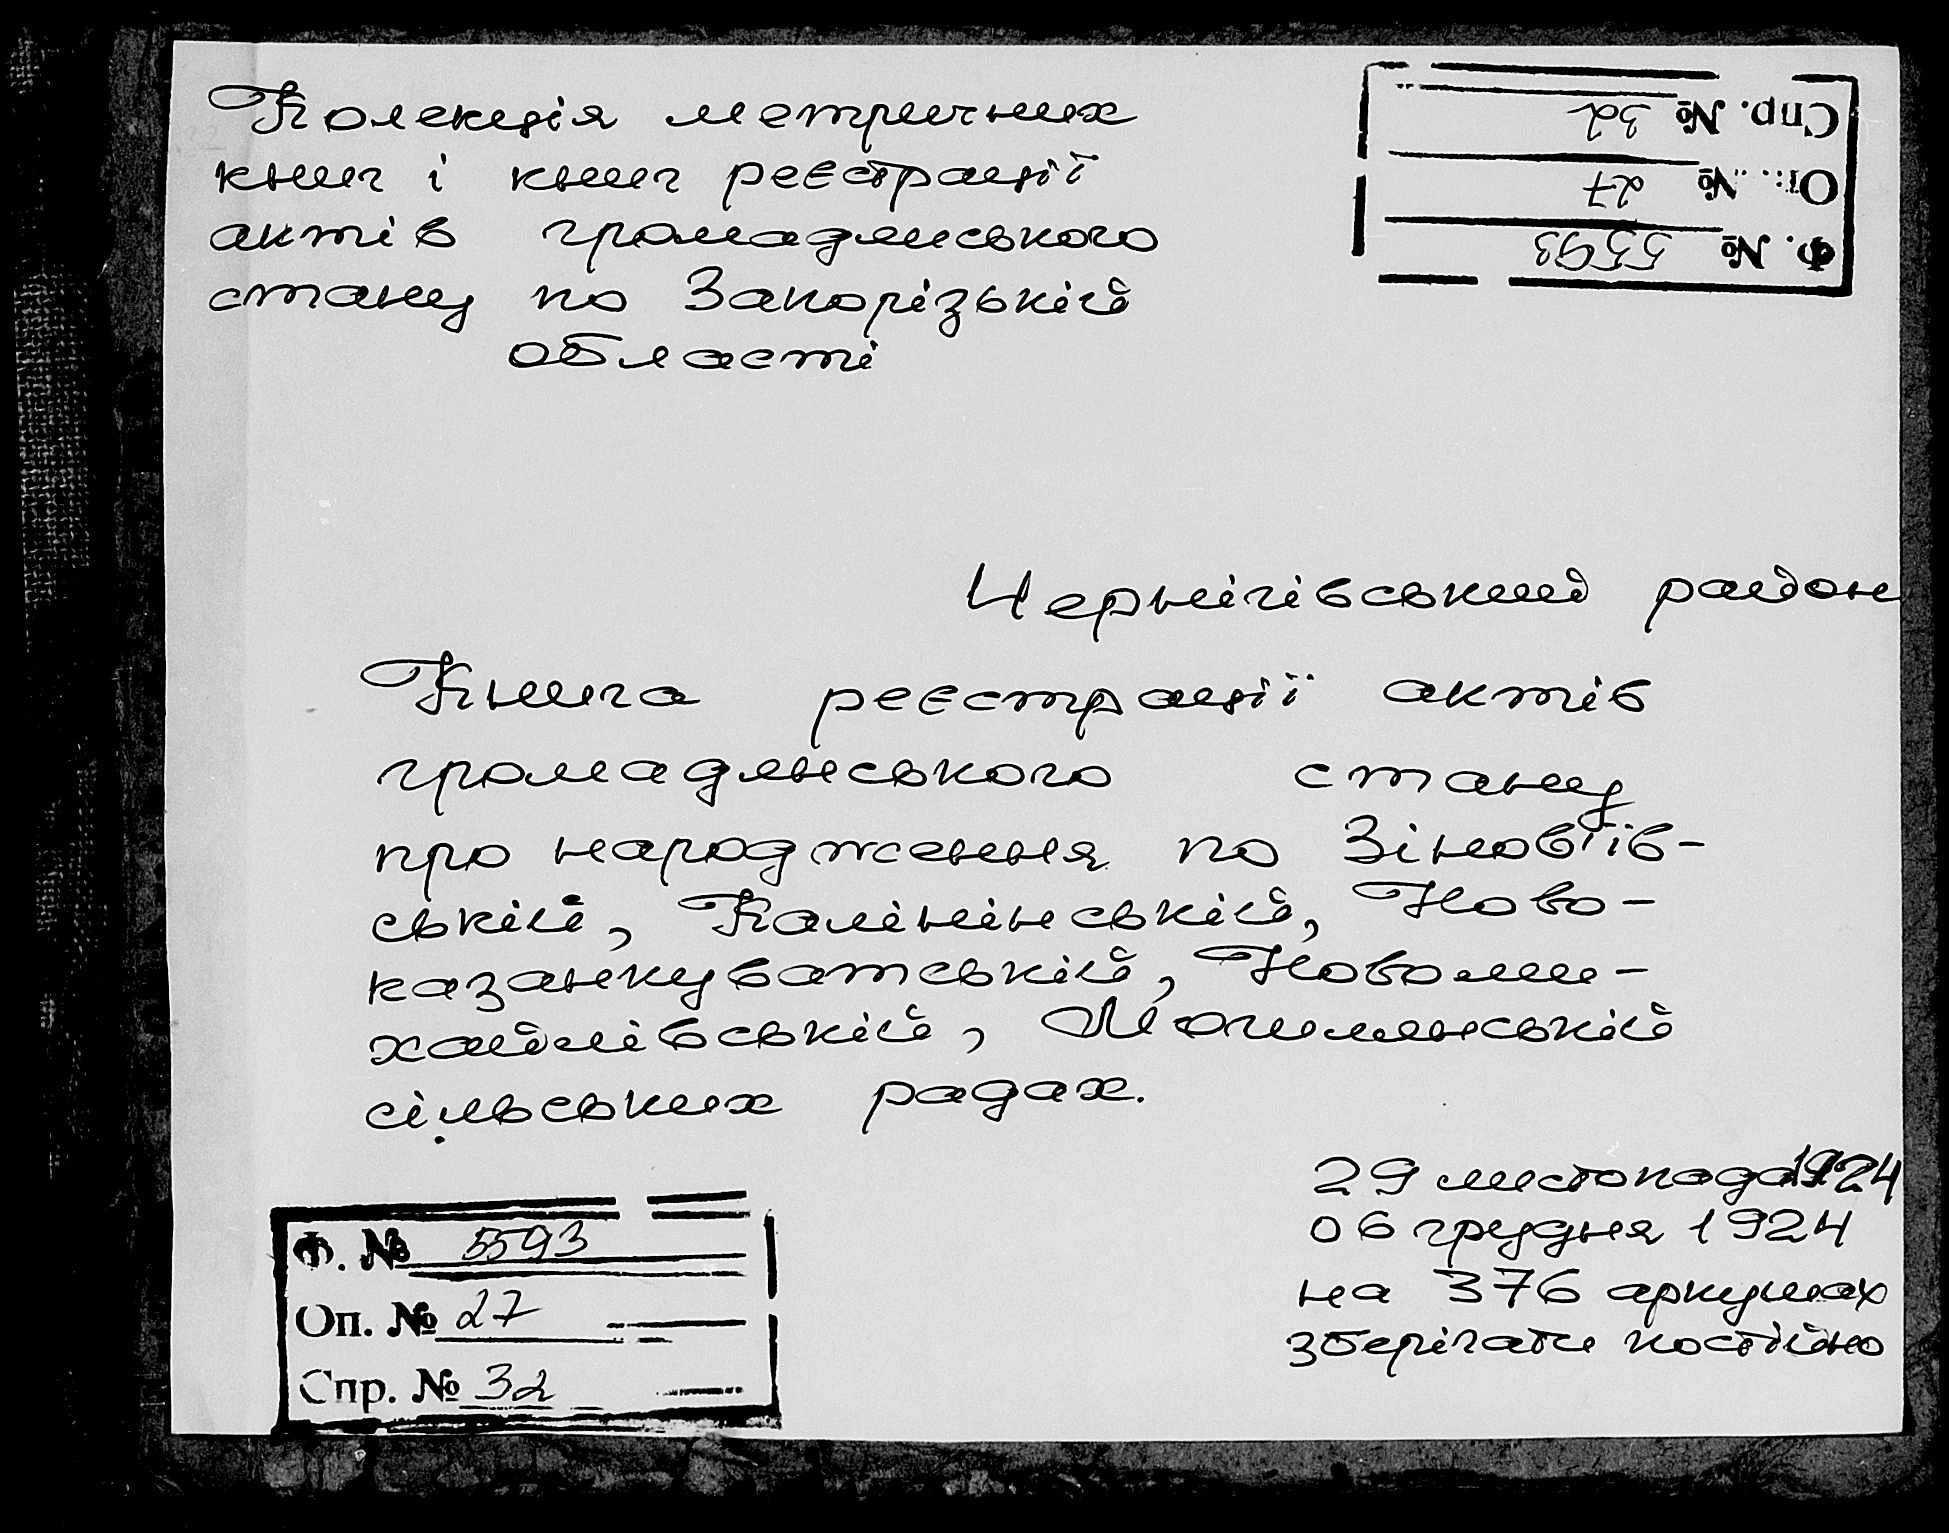 Колекція метричних
книг і книг реєстрації
актів громадянського
стану по Запорізькій
області
Спр. № 32
Оп. № 27
Ф. № 5593
Чернігівський район
Книга реєстрації актів
громадянського стану
про народження по Зінов'їв-
ській, Калінінській, Ново-
казанкуватській, Новоми-
хайлівській, Могилянській
сільських радах.
29 листопада 1924
06 грудня 1924
на 376 аркушах
зберігати постійно
Ф. № 5593
Оп. № 27
Спр. № 32